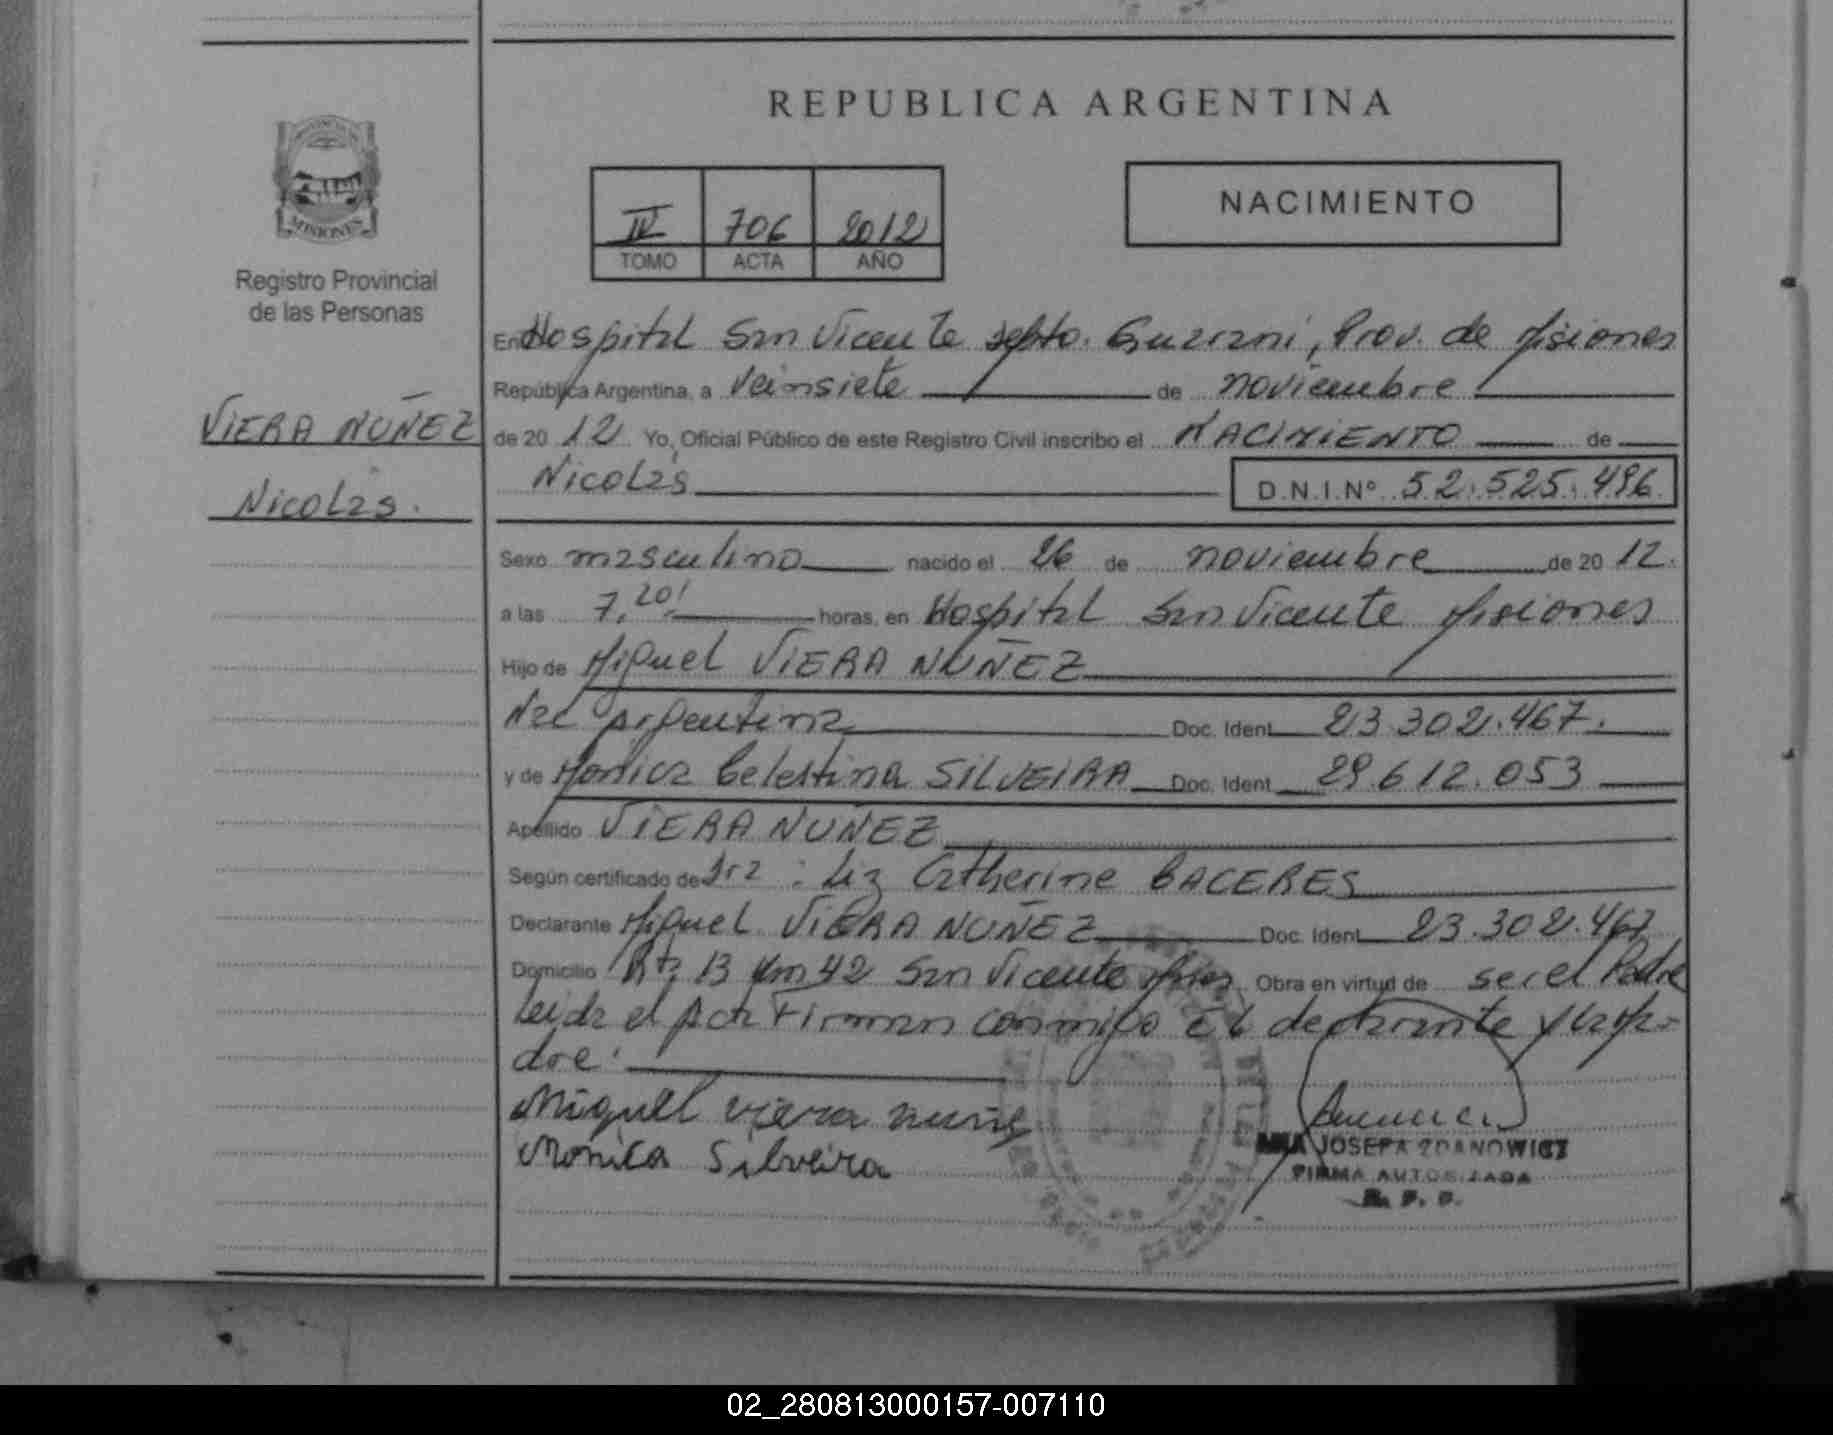 REPUBLICA ARGENTINA
PROVINCIA DE
MISIONES
Registro Provincial
de las Personas
IV 706 2012
TOMO ACTA AÑO
NACIMIENTO
VIERA NUÑEZ
Nicolás.
En Hospital San Vicente depto. Guarani, Prov. de Misiones
República Argentina, a Veinsiete de noviembre
de 20 12 Yo, Oficial Público de este Registro Civil inscribo el NACIMIENTO de
Nicolás D.N.I.Nº 52.525.496
Sexo masculino nacido el 26 de noviembre de 20 12.
a las 7,20' horas, en Hospital San Vicente Misiones
Hijo de Miguel VIERA NUÑEZ
Nac Argentina Doc. Ident. 23.302.467.
y de Monica Celestina SILVEIRA Doc. Ident. 29.612.053
Apellido VIERA NUÑEZ
Según certificado de Dra: Liz Catherine CACERES
Declarante Miguel VIERA NUÑEZ Doc. Ident. 23.302.467
Domicilio Rta 13 Km 42 San Vicente Mnes Obra en virtud de ser el Padre
Leida el Acta Firman conmigo el declarante y la Ma=
dre.
Miguel viera nuñe
Monica Silveira
ANA JOSEFA ZDANOWICZ
FIRMA AUTORIZADA
R. P. P.
02_280813000157-007110